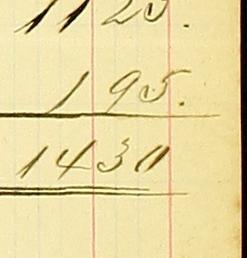 1125.
195.
1430